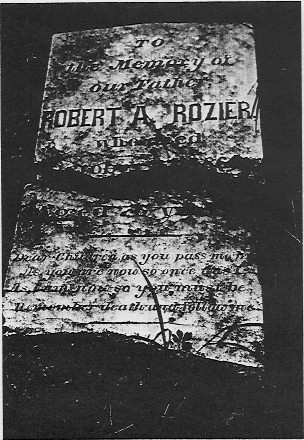 TO
the Memory of
our Father
ROBERT A. ROZIER
who died
Oct
Aged
Dear Children as you pass me by
As you are now so once was I
As I am now so you must be
Remember death and follow me